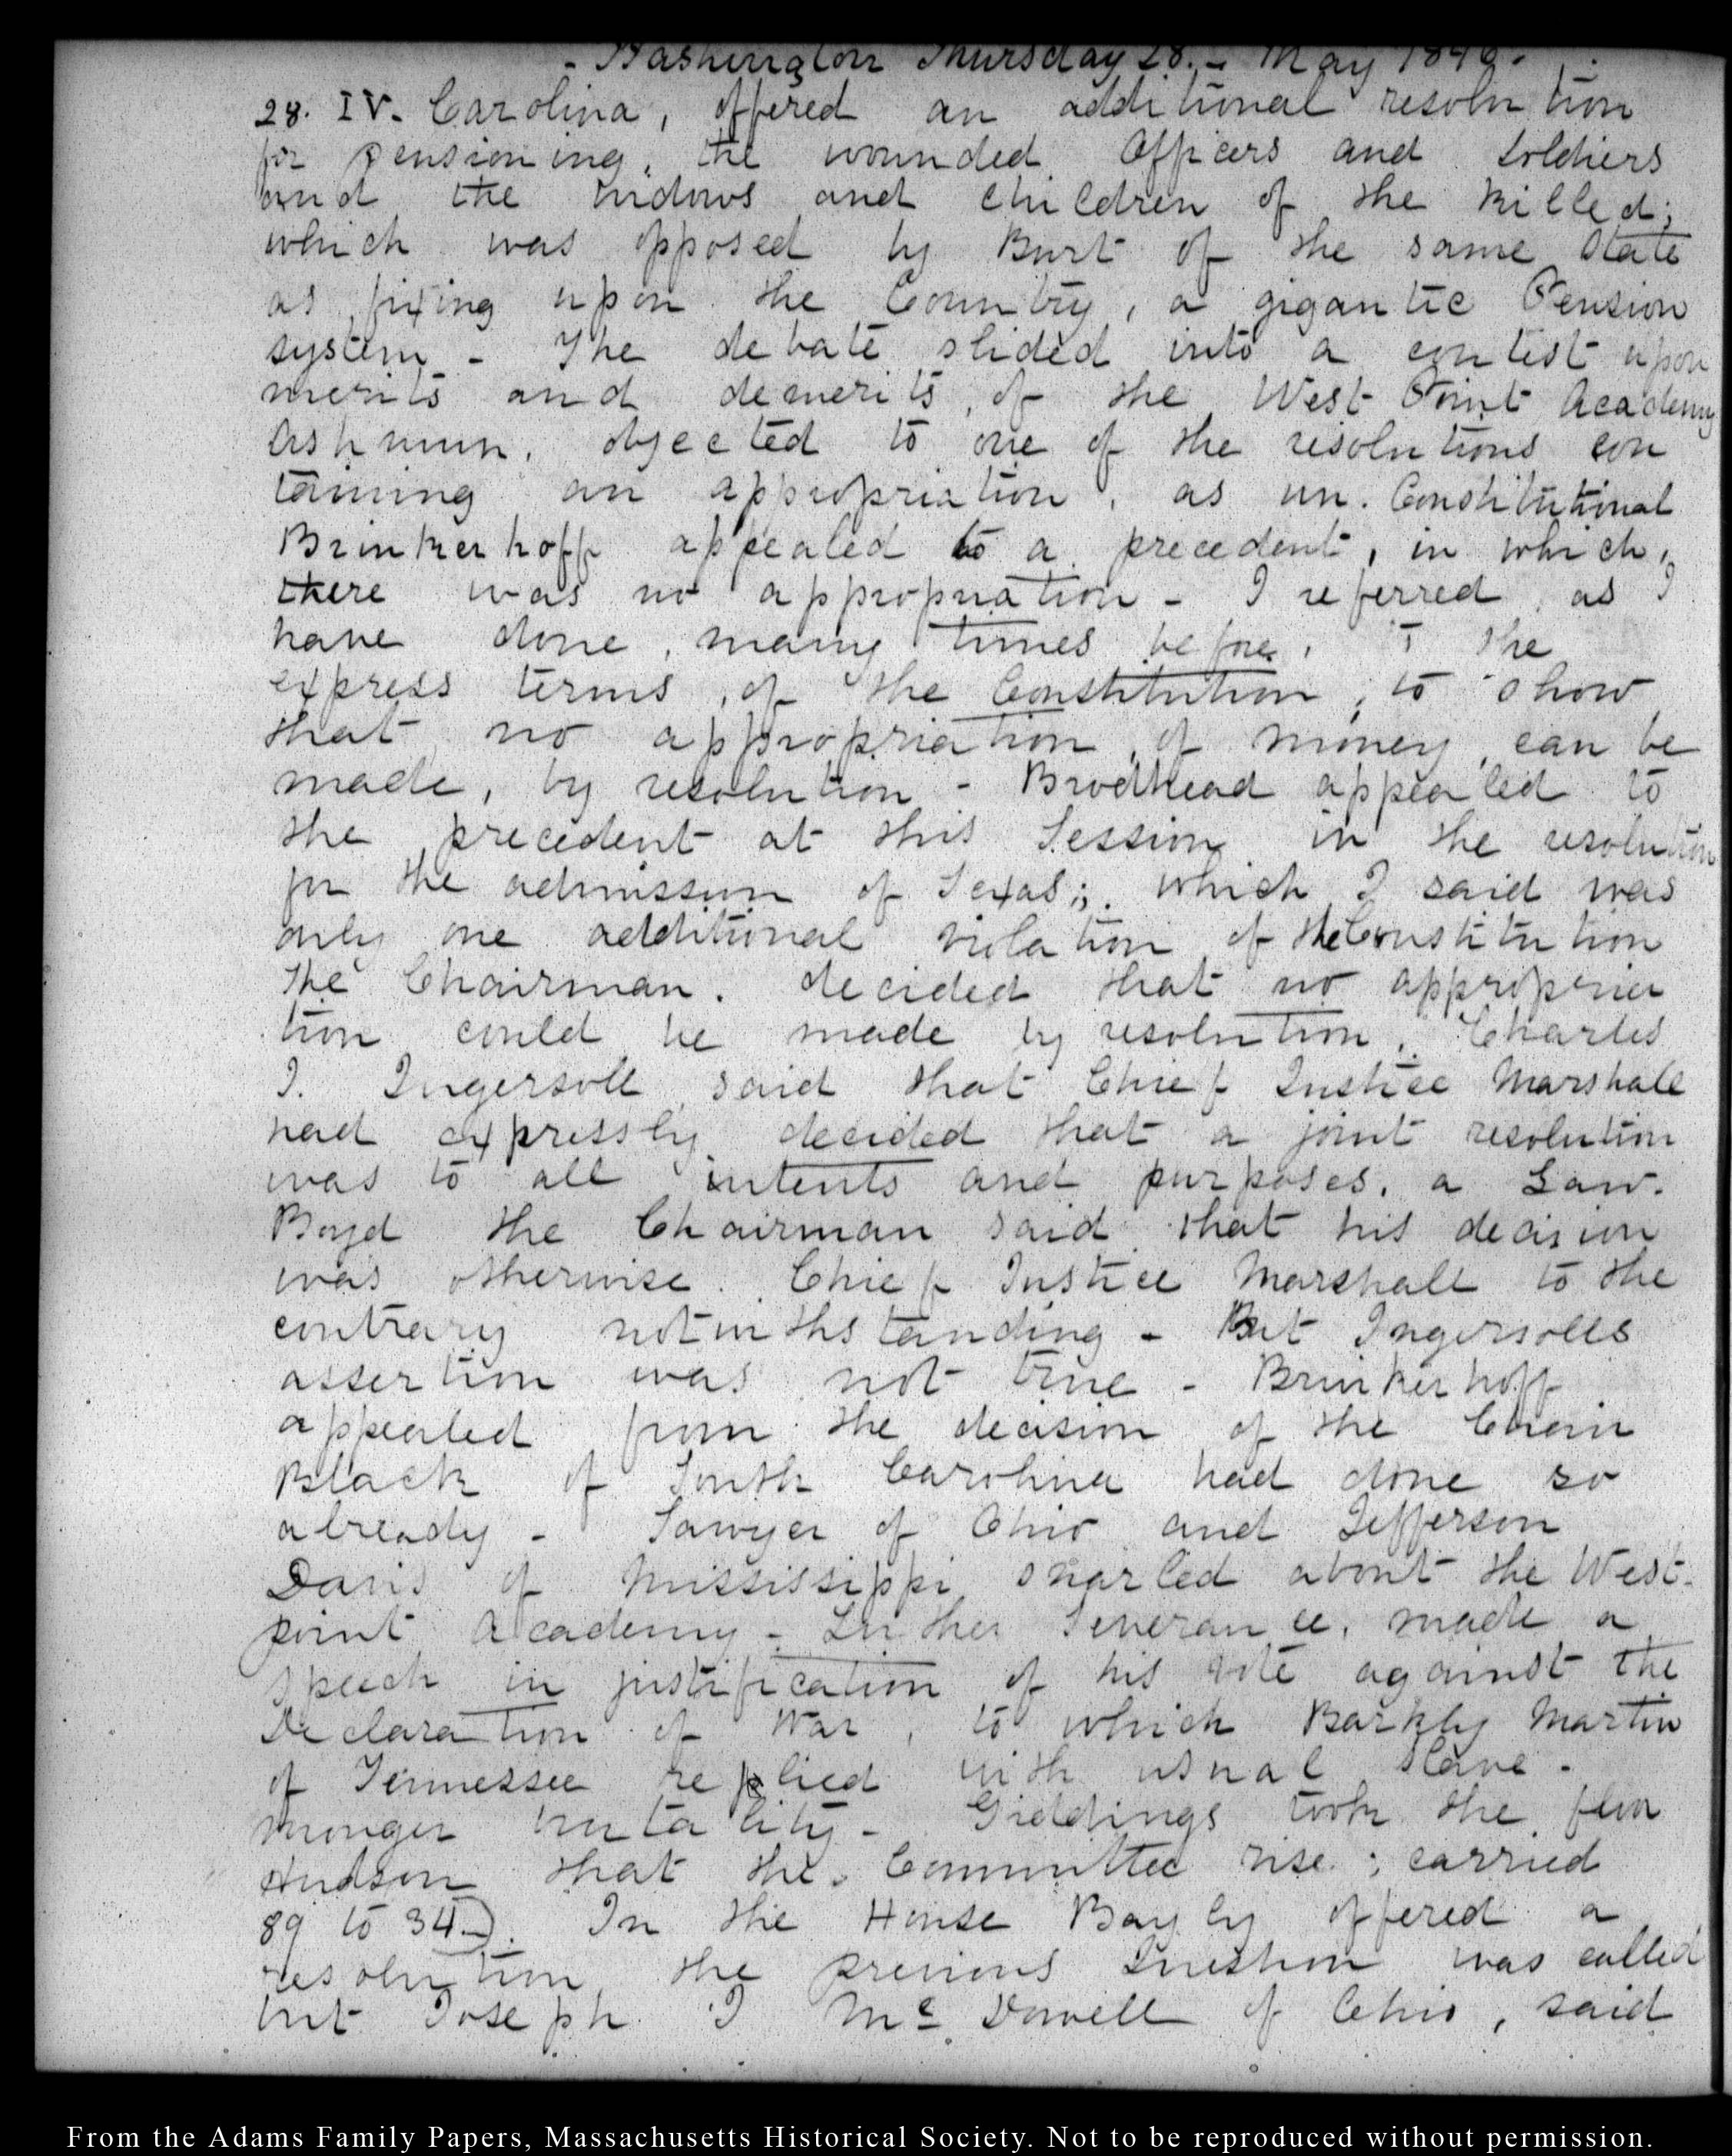 - Washington Thursday 28. - May 1846.
28. IV. Carolina, offered an additional resolution
for pensioning, the wounded Officers and soldiers
and the widows and children of the killed;
which was opposed by Burt of the same State
as fixing upon the Country, a gigantic Pension
system - The debate slided into a contest upon
merits and demerits, of the West Point Academy
Ashmun, objected to one of the resolutions con
taining an appropriation, as un. Constitutional
Brinkerhoff appealed to a precedent, in which,
there was no appropriation - I referred, as I
have done, many times before, to the
express terms, of the Constitution, to show
that no appropriation, of money, can be
made, by resolution - Brodhead appealed to
the precedent at this Session in the resolution
for the admission of Texas; which I said was
only one additional violation of the Constitution
The Chairman. decided that no appropria
tion could be made by resolution. Charles
J. Ingersoll said that Chief Justice Marshall
had expressly decided that a joint resolution
was to all intents and purposes, a Law.
Boyd the Chairman said that his decision
was otherwise. Chief Justice Marshall to the
contrary notwithstanding - But Ingersolls
assertion was not true - Brinkerhoff
appealed from the decision of the Chair
Black of South Carolina had done so
already - Sawyer of Ohio and Jefferson
Davis of Mississippi snarled about the West-
point Academy - Luther Severance, made a
speech in justification of his vote against the
Declaration of War, to which Barkly Martin
of Tennessee replied with usual slave-
monger brutality - Giddings took the floor
Hudson that the Committee rise; carried
89 to 34-). In the House Bayly offered a
resolution the previous Question was called
but Joseph J McDowell of Ohio, said
From the Adams Family Papers, Massachusetts Historical Society. Not to be reproduced without permission.